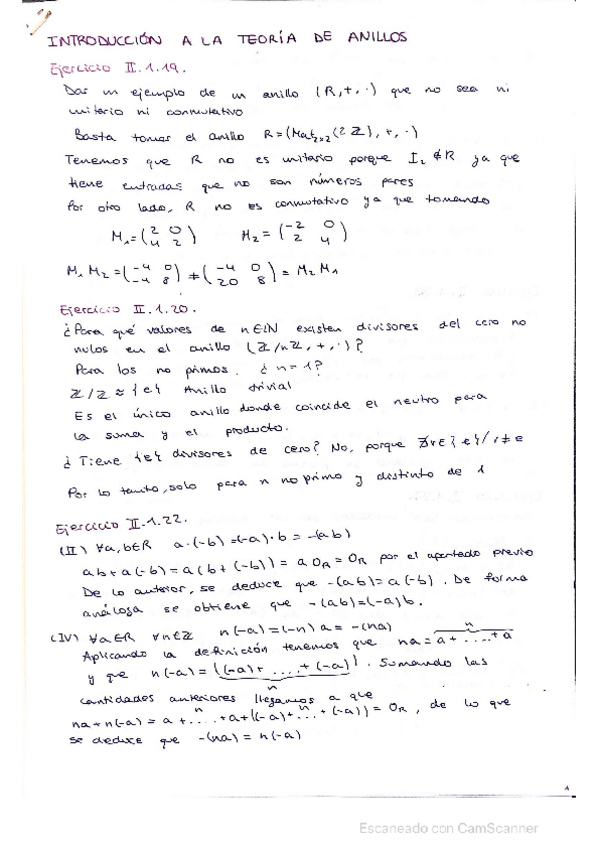 INTRODUCCIÓN A LA TEORÍA DE ANILLOS
Ejercicio II.1.19.
Dar un ejemplo de un anillo (R,+,·) que no sea ni
unitario ni conmutativo
Basta tomar el anillo R=(Mat₂ₓ₂(2ℤ),+,·)
Tenemos que R no es unitario porque I₂ ∉ R ya que
tiene entradas que no son números pares
Por otro lado, R no es conmutativo ya que tomando
M₁=(2 0 / 4 2) M₂=(-2 0 / 2 4)
M₁M₂=(-4 0 / -4 8) ≠ (-4 0 / 20 8) = M₂M₁
Ejercicio II.1.20.
¿Para qué valores de n∈ℕ existen divisores del cero no
nulos en el anillo (ℤ/nℤ,+,·)?
Para los no primos. ¿n=1?
ℤ/ℤ ≈ {e} Anillo trivial
Es el único anillo donde coincide el neutro para
la suma y el producto.
¿Tiene {e} divisores de cero? No, porque ∄r∈{e}/r≠e
Por lo tanto, solo para n no primo y distinto de 1
Ejercicio II.1.22.
(II) ∀a,b∈R a·(-b)=(-a)·b=-(ab)
ab+a(-b)=a(b+(-b))=a0_R=0_R por el apartado previo
De lo anterior, se deduce que -(ab)=a(-b). De forma
análoga se obtiene que -(ab)=(-a)b.
(IV) ∀a∈R ∀n∈ℤ n(-a)=(-n)a=-(na)
Aplicando la definición tenemos que na=a+....+a n
y que n(-a)=((-a)+....+(-a)). Sumando las
n
cantidades anteriores llegamos a que
na+n(-a)=a+.n.+a+((-a)+.n.+(-a))=0_R, de lo que
se deduce que -(na)=n(-a)
1
Escaneado con CamScanner